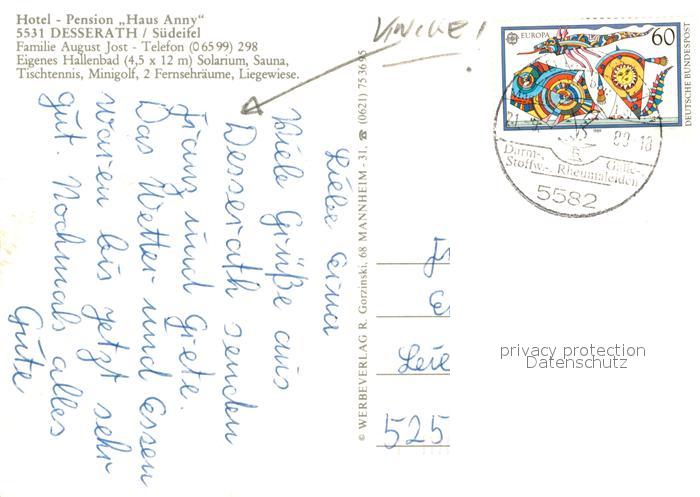 Hotel - Pension „Haus Anny“
5531 DESSERATH / Südeifel
Familie August Jost - Telefon (0 65 99) 298
Eigenes Hallenbad (4,5 x 12 m) Solarium, Sauna,
Tischtennis, Minigolf, 2 Fernsehräume, Liegewiese.
Liebe
Viele Grüße aus
Desserath senden
Franz und Grete.
Das Wetter und Essen
waren bis jetzt sehr
gut. Nochmals alles
Gute
© WERBEVERLAG R. Gorzinski, 68 MANNHEIM - 31, ☎ (0621) 75 36 95
EUROPA
60
DEUTSCHE BUNDESPOST
89-18
Darm-,
Stoffw.-, Rheumaleiden
5582
525
privacy protection
Datenschutz